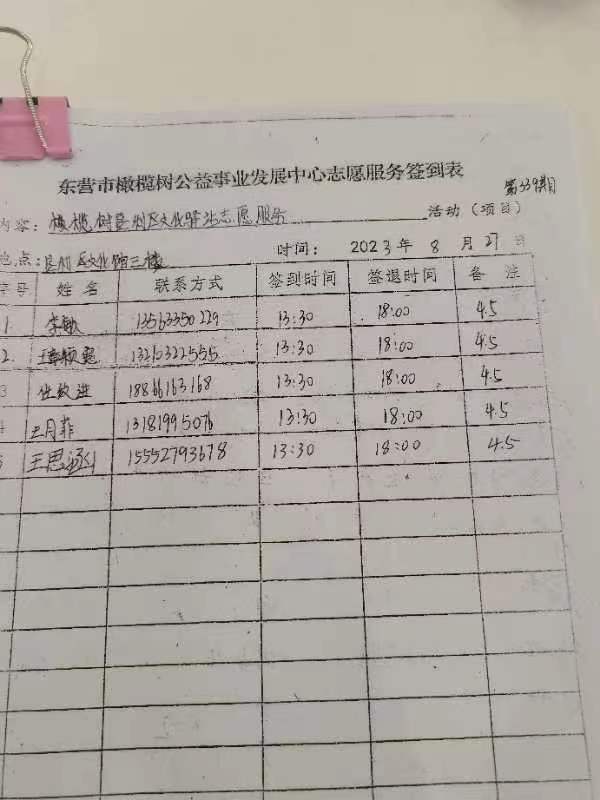 东营市橄榄树公益事业发展中心志愿服务签到表
第339期
内容：橄榄树垦利区文化驿站志愿服务 活动（项目）
地点：垦利区文化馆三楼 时间：2023年8月27日
序号 姓名 联系方式 签到时间 签退时间 备注
1 李敏 13563350229 13:30 18:00 4.5
2 13210322555 13:30 18:00 4.5
3 18866163168 13:30 18:00 4.5
4 王月菲 13181995076 13:30 18:00 4.5
5 王思涵 15552793678 13:30 18:00 4.5